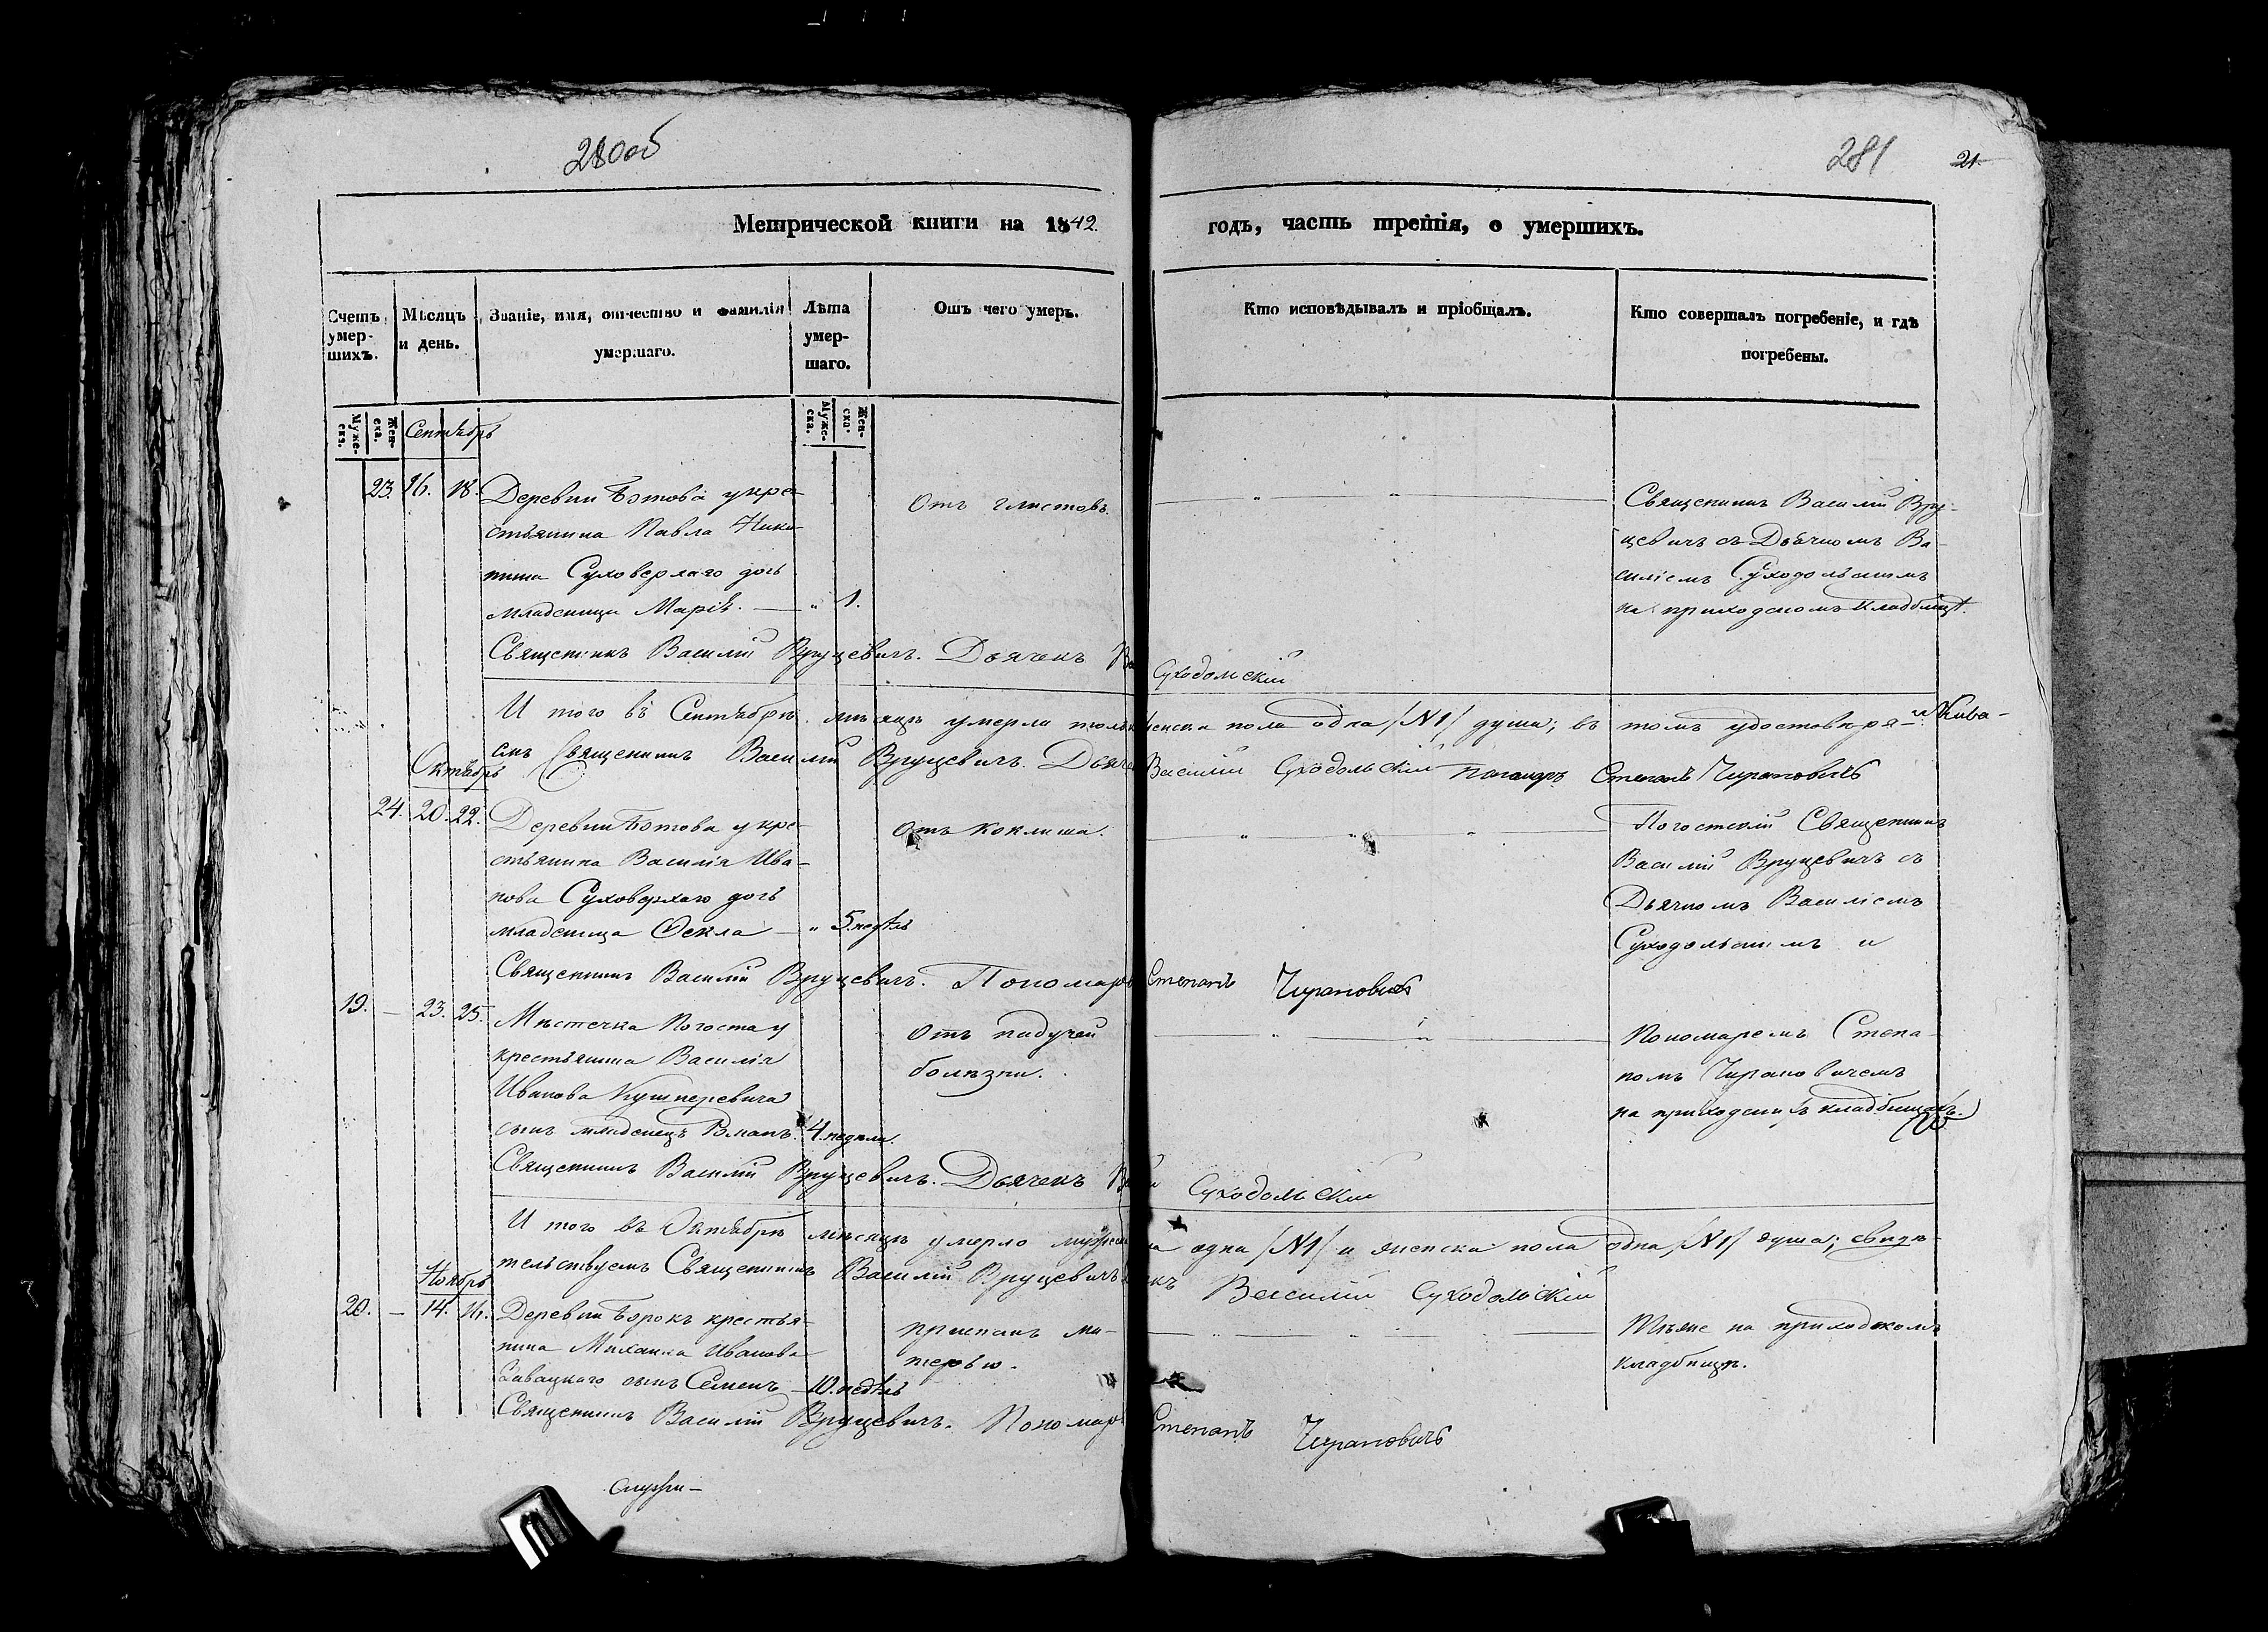 280об
281
21.
Метрической книги на 1842. годъ, часть третія, о умершихъ.
Счетъ умер-шихъ.
Мѣсяцъ и день.
Званіе, имя, отчество и фамилія умершаго.
Лѣта умер-шаго.
Отъ чего умеръ.
Кто исповѣдывалъ и пріобщалъ.
Кто совершалъ погребеніе, и гдѣ погребены.
Муже-ска.
Жен-ска.
Муже-ска.
Жен-ска.
Сентябрь
23. 16. 18.
Деревни укре-
стьянина Павла Ники-
тина Суховерхаго дочь
младеница Марія. — " 1.
Отъ глистовъ.
Священникъ Василій Вру-
цевичъ съ Дьячкомъ Ва-
силіемъ Суходольскимъ
на приходскомъ кладбищѣ.
Священникъ Василій Вруцевичъ. Дьячекъ Суходольскій
И того въ Сентябрѣ мѣсяцѣ умерла женска пола одна /№1/ душа; въ томъ удостовѣря-
емъ Священникъ Василій Вруцевичъ. Василій Суходольскій Пономарь Степанъ Чирановичъ
Октябрь
24. 20. 22.
Деревни укре-
стьянина Василія Ива-
нова Суховерхаго дочь
младеница Ѳекла — " 5. недѣль
Отъ коклиша.
Погостскій Священникъ
Василій Вруцевичъ съ
Дьячкомъ Василіемъ
Суходольскимъ и
Священникъ Василій Вруцевичъ. Пономарь Степанъ Чирановичъ
19. — 23. 25.
Мѣстечка Погоста у
крестьянина Василія
Иванова
сынъ младенецъ 4. недели.
Отъ падучей
болѣзни.
Пономаремъ Степа-
номъ Чирановичемъ
на приходскомъ кладбищѣ.
Священникъ Василій Вруцевичъ. Дьячекъ Суходольскій
И того въ Октябрѣ мѣсяцѣ умерло одна /№1/ и женска пола одна /№1/ душа; свидѣ-
тельствуемъ Священникъ Василій Вруцевичъ Василій Суходольскій
Ноябрь
20. — 14. 16.
Деревни Борокъ крестья-
нина Михаила Иванова
сынъ Семенъ — 10. недѣль
приспанъ ма-
терью.
Тѣже на приходскомъ
кладбищѣ.
Священникъ Василій Вруцевичъ. Пономарь Степанъ Чирановичъ